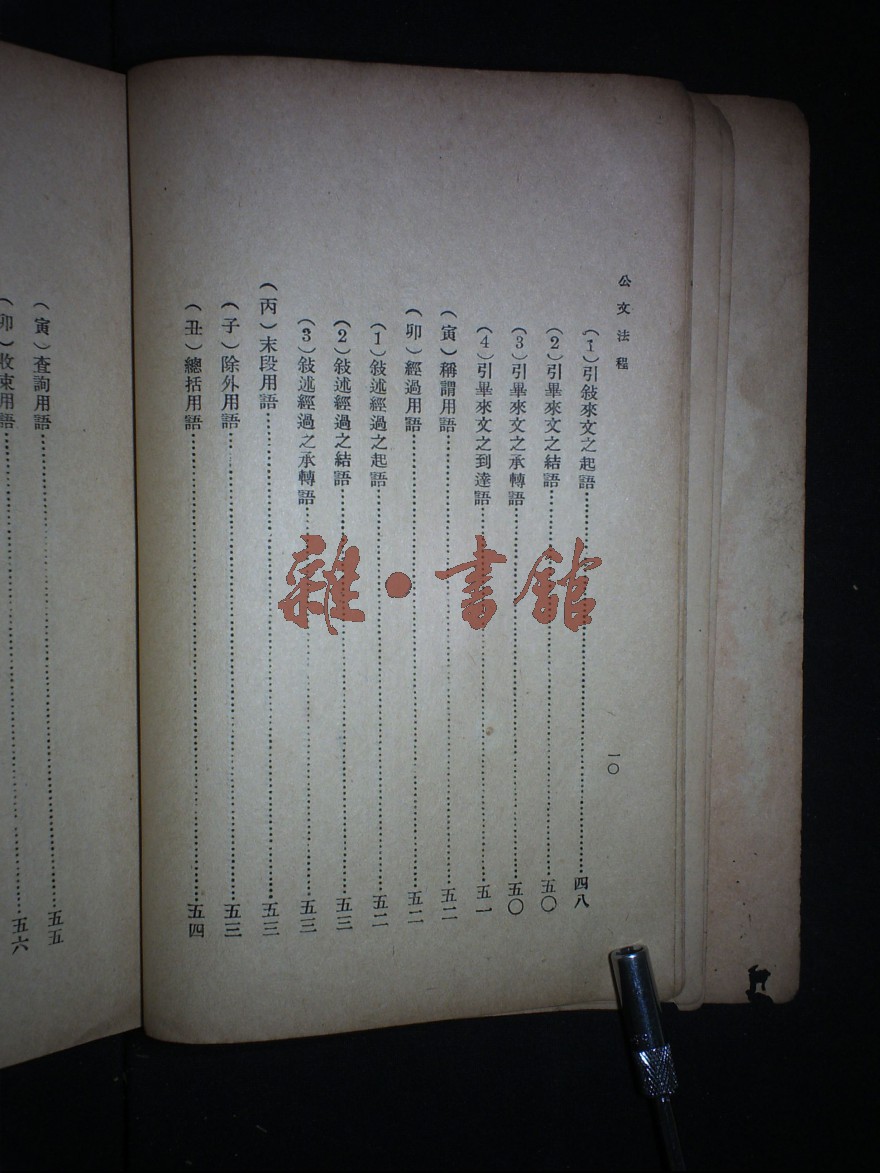 公文法程
一〇
(1)引敍來文之起語……四八
(2)引畢來文之結語……五〇
(3)引畢來文之承轉語……五〇
(4)引畢來文之到達語……五一
(寅)稱謂用語……五二
(卯)經過用語……五二
(1)敍述經過之起語……五二
(2)敍述經過之結語……五三
(3)敍述經過之承轉語……五三
(丙)末段用語……五三
(子)除外用語……五三
(丑)總括用語……五四
(寅)查詢用語……五五
(卯)收束用語……五六
雜·書館